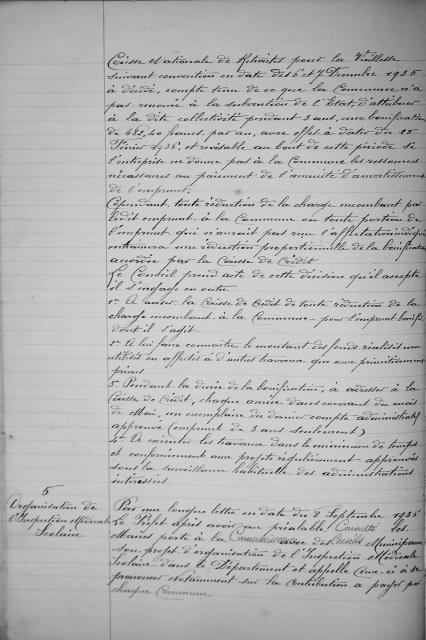 Caisse Nationale de Retraites pour la Vieillesse
suivant convention en date des 6 et 7 Decembre 1935
a décidé, compte tenu de ce que la Commune n'a
pas renoncé à la subvention de l'Etat, d'attribuer
à la dite collectivité pendant 3 ans, une bonification
de 482,40 francs par an, avec effet à dater du 25
Février 1936, et revisable au bout de cette période si
l'entreprise ne donne pas à la Commune les ressources
nécessaires au paiement de l'annuité d'amortissement
de l'emprunt.
Cependant toute réduction de la charge incombant par
ledit emprunt à la Commune ou toute portion de
l'emprunt qui n'aurait pas reçu l'affectation indiquée
entrainera une réduction proportionnelle de la bonification
accordée par la Caisse de Crédit
Le Conseil prend acte de cette décision qu'il accepte
il s'engage en outre
1° A aviser la Caisse de Crédit de toute réduction de la
charge incombant à la Commune pour l'emprunt bonifié
dont il s'agit.
2° A lui faire connaitre le montant des fonds réalisés non
utilisés ou affectés à d'autres travaux que ceux primitivement
prévus
3° Pendant la durée de la bonification, à adresser à la
Caisse de Crédit, chaque année dans courant du mois
de Mai, un exemplaire du dernier compte administratif
approuvé (emprunt de 3 ans seulement)
4° A exécuter les travaux dans le minimum de temps
et conformément aux projets régulièrement approuvés
sous la surveillance habituelle des administrations
intéressées.
5
Organisation de
l'Inspection Médicale
Scolaire
Par une longue lettre en date du 8 Septembre 1936
le Préfet après avoir au préalable les
Maires porte à la connaissance des Conseils Municipaux
son projet d'organisation de l'Inspection Médicale
Scolaire dans le Département et appelle ceux-ci à se
prononcer notamment sur la contribution à payer par
chaque commune